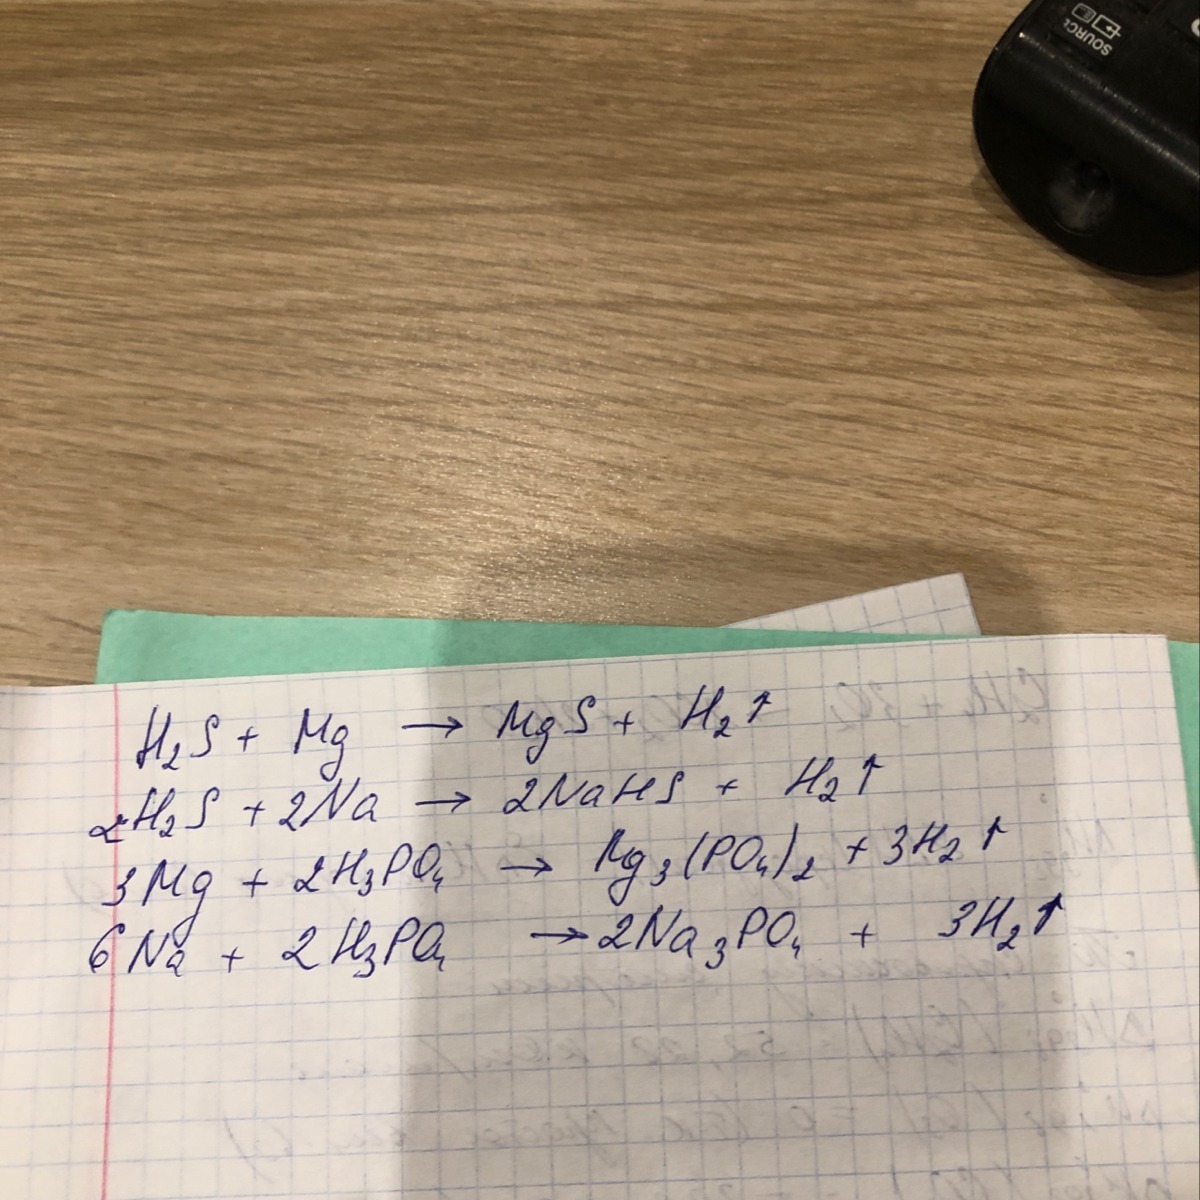 SOURCE
H₂S + Mg → MgS + H₂↑
2H₂S + 2Na → 2NaHS + H₂↑
3Mg + 2H₃PO₄ → Mg₃(PO₄)₂ + 3H₂↑
6Na + 2H₃PO₄ → 2Na₃PO₄ + 3H₂↑